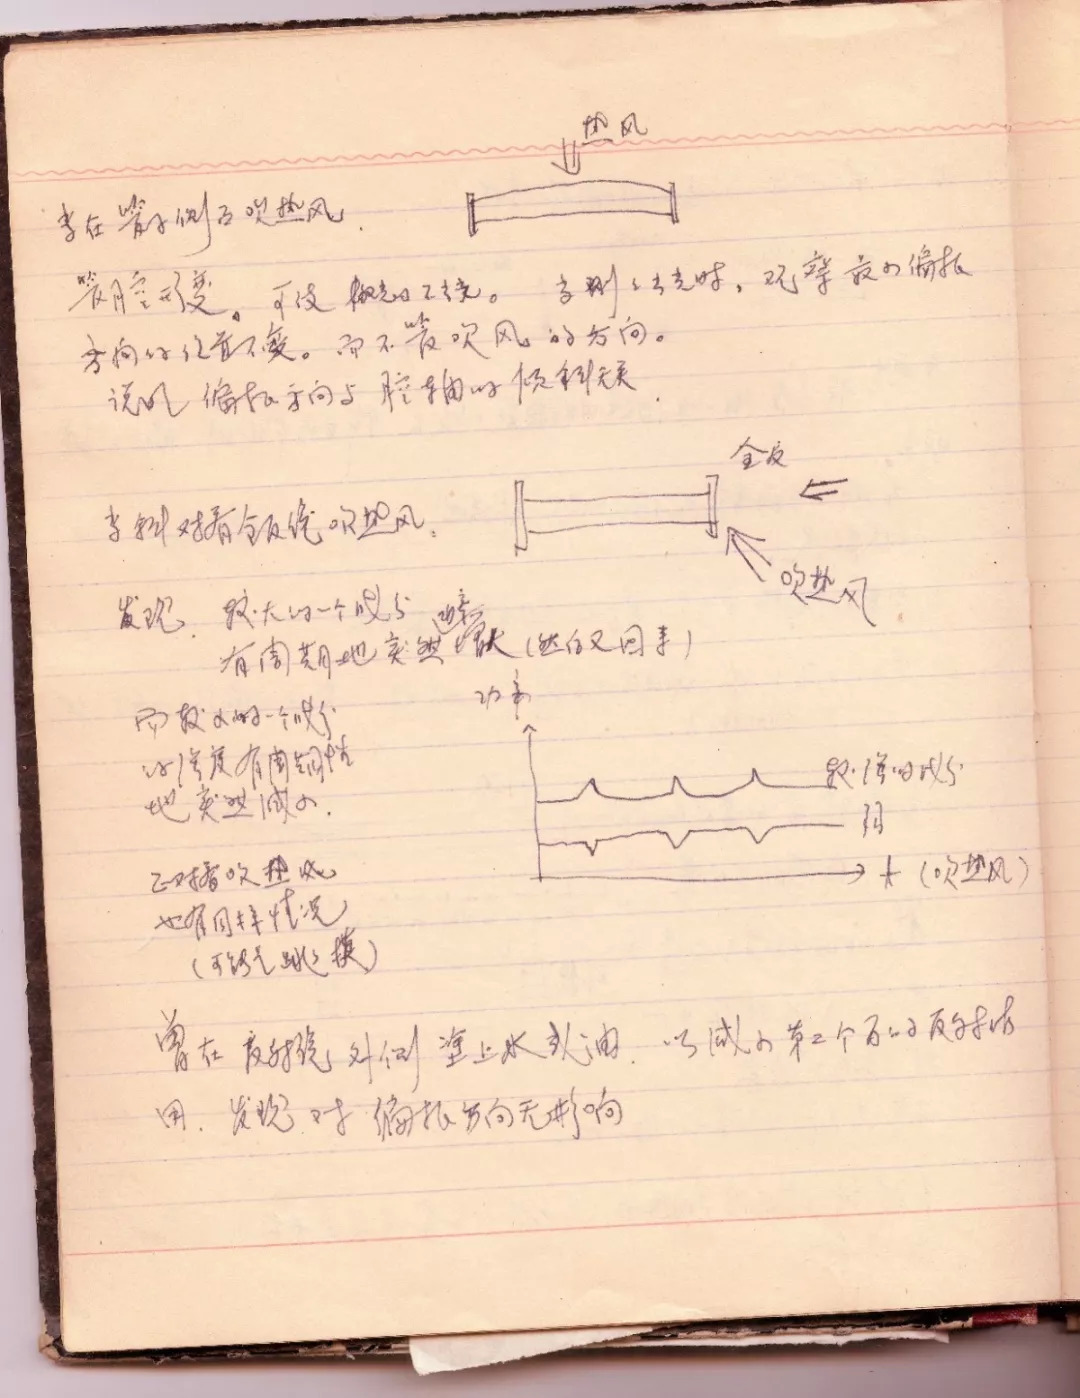 热风
当在管子侧面吹热风.
管腔形变。可使激光出不去光。当刚出光时，观察最小偏振
方向的位置不变。而不管吹风的方向。
说明偏振方向与腔轴的倾斜无关.
全反
当斜对着全反镜吹热风.
吹热风
发现. 较大的一个成分
有周期地突然增大(然后又回来)
功率
而较小的一个成分
的强度有周期性
地突然减小.
较强的成分
弱
t (吹热风)
正对着吹热风
也有同样情况
(可能是跳模)
曾在反射镜外侧涂上水或油. 以减小第二个面的反射作
用. 发现对偏振方向无影响